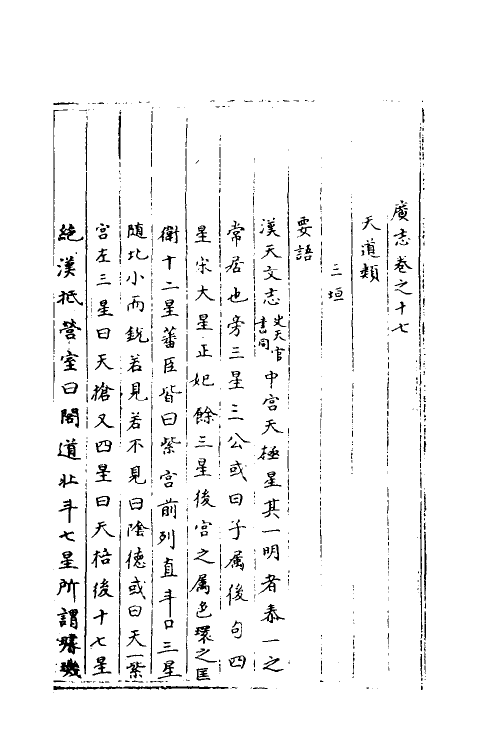 廣志卷之十七
天道類
三垣
要語
漢天文志史天官書同中宮天極星其一明者泰一之
常居也旁三星三公或曰子属後句四
星宋大星正妃餘三星後宮之属也環之匡
衛十二星蕃臣皆曰紫宮前列直斗口三星
随北小而銳若見若不見曰陰德或曰天一紫
宮左三星曰天槍又四星曰天棓後十七星
絶漢抵營室曰閣道北斗七星所謂璇璣